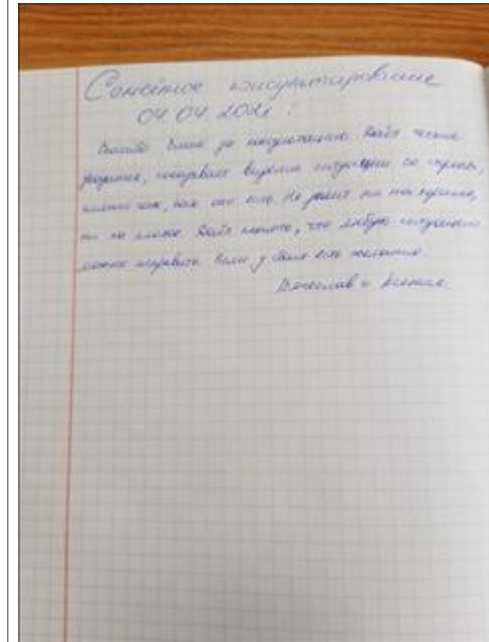 Семейное консультирование
04 04 2021 !
Спасибо Елене за консультацию. Даёт четкие
задания, показывает видение ситуации со стороны,
именно так, как оно есть. Не делит ни на хорошо,
ни на плохо. Даёт понять, что любую ситуацию
можно исправить. Если у Вас есть желание.
Вячеслав и Ксения.